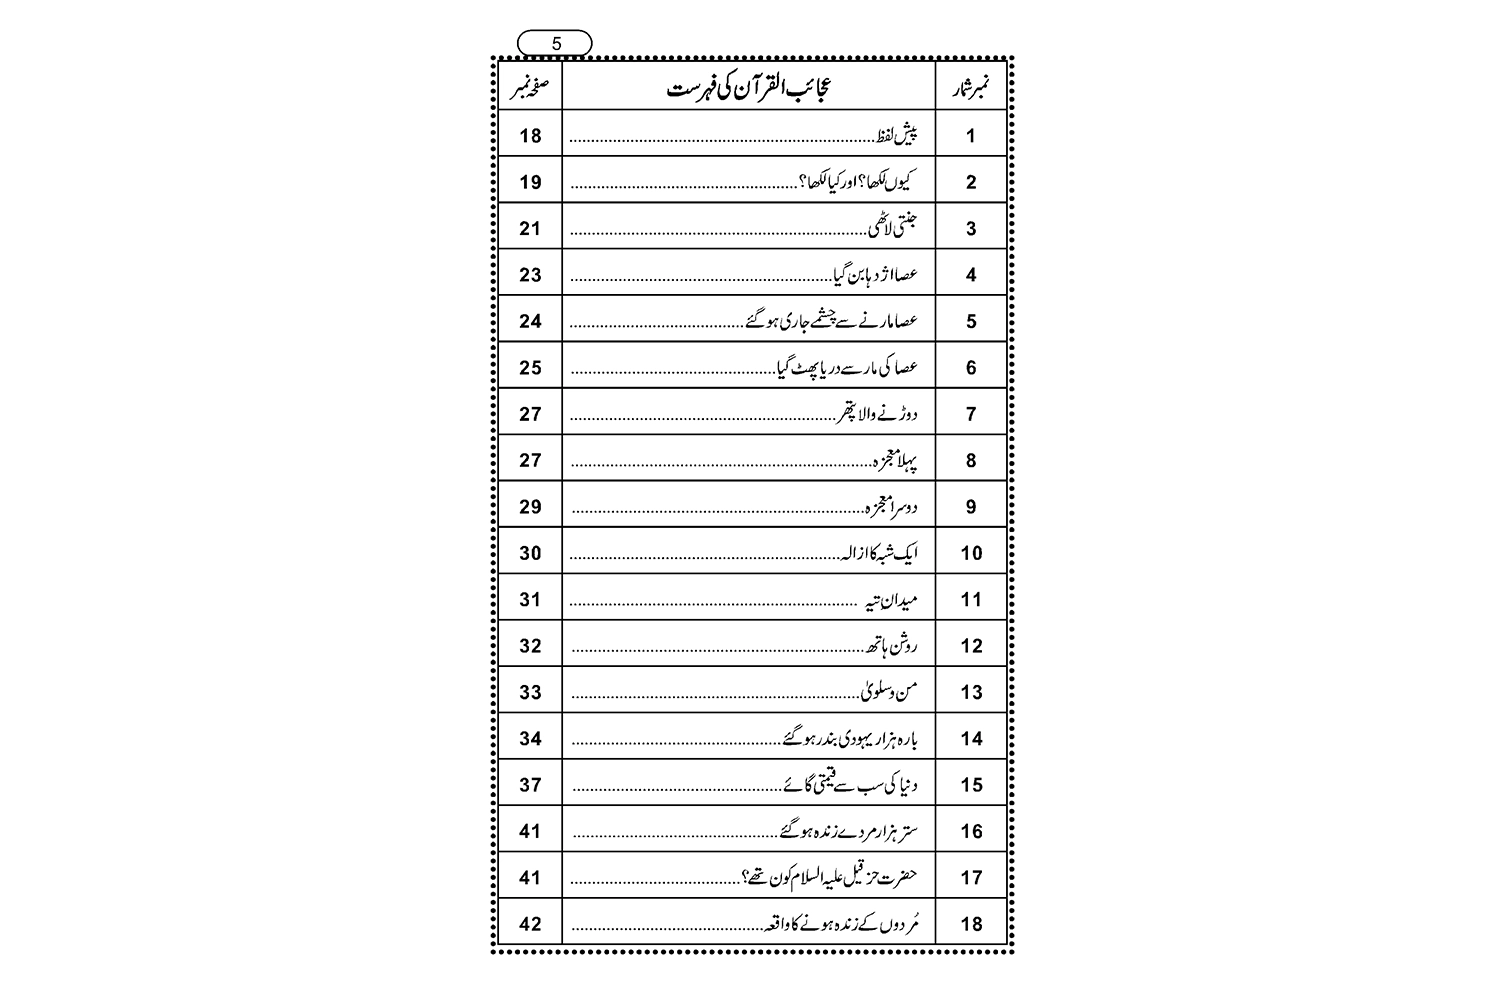 5
نمبر شمار عجائب القرآن کی فہرست صفحہ نمبر
1 پیش لفظ........................................................................ 18
2 کیوں لکھا؟ اور کیا لکھا؟.................................................... 19
3 جنتی لاٹھی.................................................................... 21
4 عصا اژدہا بن گیا............................................................ 23
5 عصا مارنے سے چشمے جاری ہو گئے........................................ 24
6 عصا کی مار سے دریا پھٹ گیا............................................... 25
7 دوڑنے والا پتھر............................................................. 27
8 پہلا معجزہ..................................................................... 27
9 دوسرا معجزہ................................................................... 29
10 ایک شبہ کا ازالہ.............................................................. 30
11 میدانِ تیہ .................................................................. 31
12 روشن ہاتھ................................................................... 32
13 من و سلویٰ.................................................................. 33
14 بارہ ہزار یہودی بندر ہو گئے................................................ 34
15 دنیا کی سب سے قیمتی گائے................................................ 37
16 ستر ہزار مردے زندہ ہو گئے............................................... 41
17 حضرت حزقیل علیہ السلام کون تھے؟....................................... 41
18 مُردوں کے زندہ ہونے کا واقعہ............................................ 42